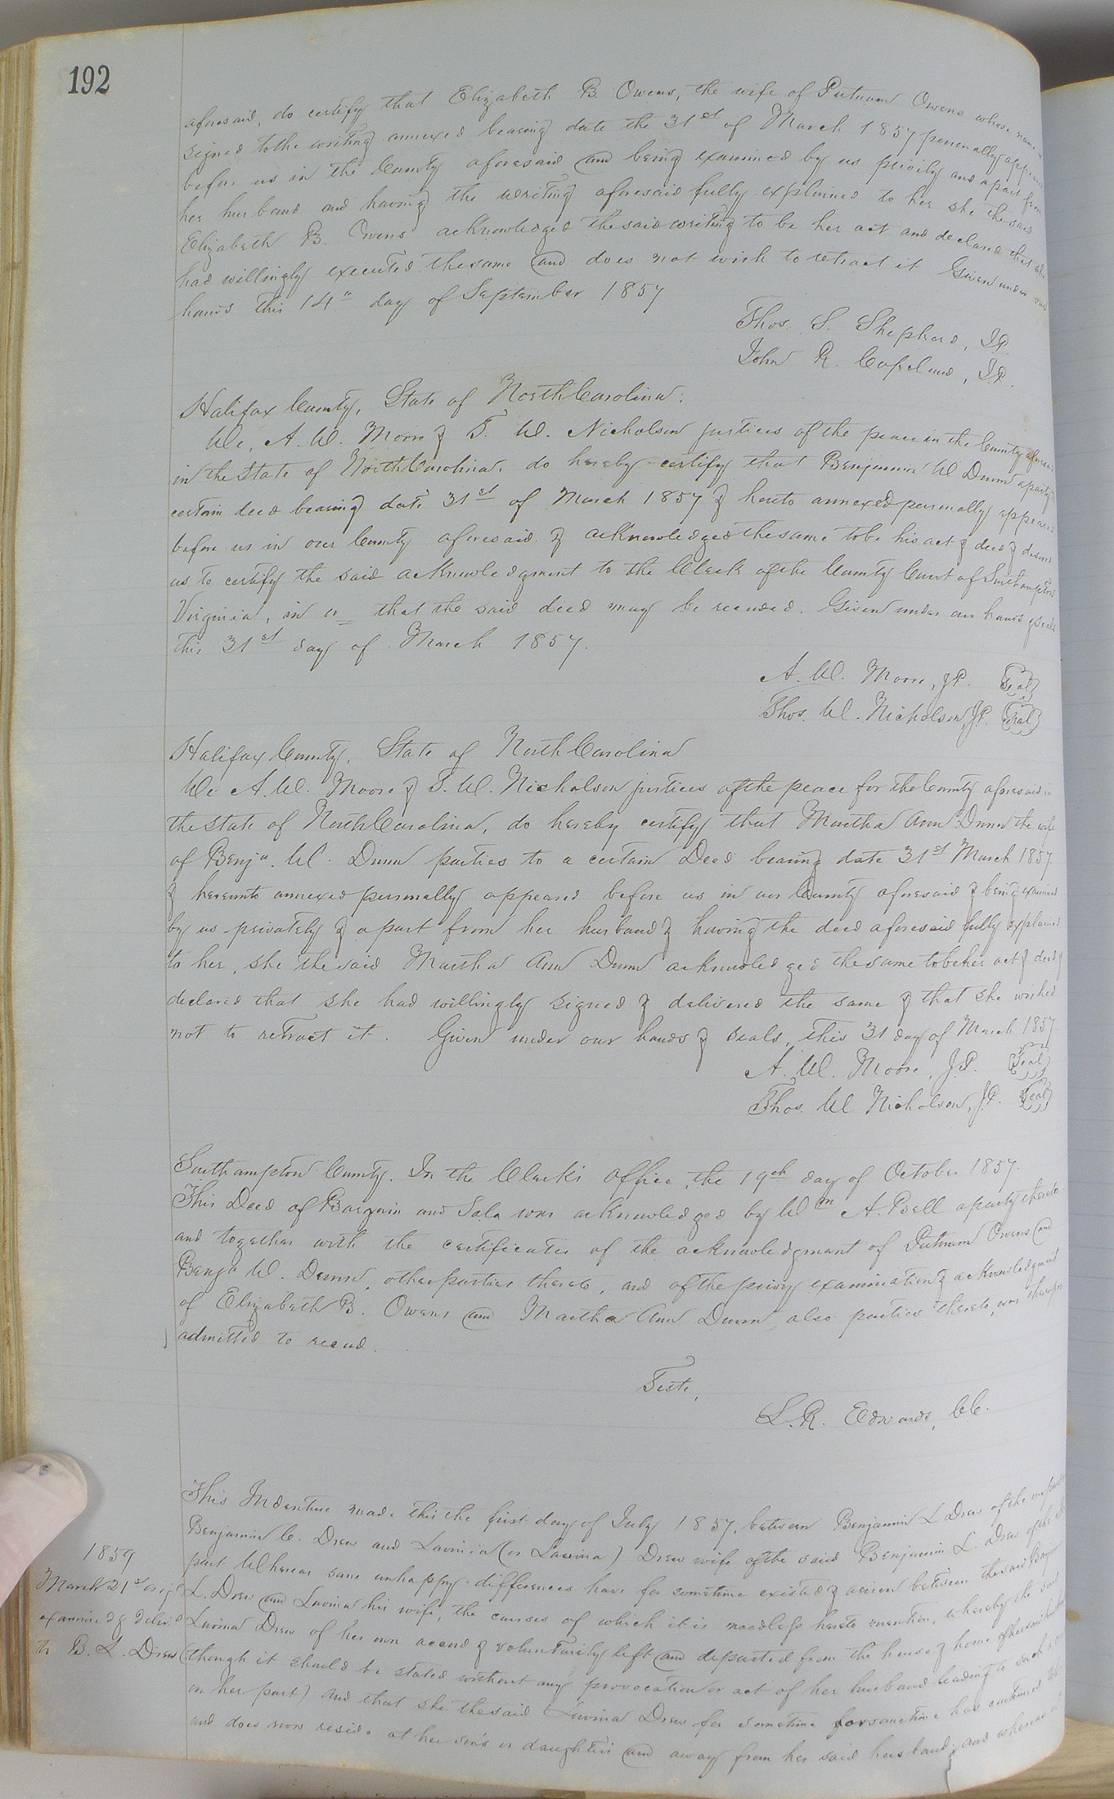 192
aforesaid, do certify that Elizabeth B. Owens, the wife of Putnam Owens whose name is
signed to the writing annexed bearing date the 31st of March 1857 personally appeared
before us in the County aforesaid and being examined by us privily and apart from
her husband and having the writing aforesaid fully explained to her she the said
Elizabeth B. Owens acknowledged the said writing to be her act and declared that she
had willingly executed the same and does not wish to retract it Given under our
hands this 14th day of September 1857
Thos. S. Shepherd, J.P.
John R. Copeland, J.P.
Halifax County, State of North Carolina:
We, A. W. Moore & T. W. Nicholson justices of the peace in the County aforesaid
in the State of North Carolina, do hereby certify that Benjamin W Dunn a party to
certain deed bearing date 31st of March 1857 & hereto annexed personally appeared
before us in our County aforesaid & acknowledged the same to be his act & deed & desired
us to certify the said acknowledgment to the Clerk of the County Court of Southampton
Virginia, in o_ that the said deed may be recorded. Given under our hands & seals
this 31st day of March 1857.
A. W. Moore, J.P. Seal
Thos. W. Nicholson, J.P. Seal
Halifax County, State of North Carolina
We A. W. Moore & T. W. Nicholson justices of the peace for the County aforesaid in
the State of North Carolina, do hereby certify that Martha Ann Dunn the wife
of Benja. W. Dunn parties to a certain Deed bearing date 31st March 1857
& hereunto annexed personally appeared before us in our County aforesaid & being examined
by us privately & apart from her husband & having the deed aforesaid fully explained
to her, she the said Martha Ann Dunn acknowledged the same to be her act & deed &
declared that she had willingly signed & delivered the same & that she wished
not to retract it. Given under our hands & seals, this 31 day of March 1857
A. W. Moore, J.P. Seal
Thos. W Nicholson, J.P. Seal
Southampton County. In the Clerk's office, the 19th day of October 1857.
This Deed of Bargain and Sale was acknowledged by Wm A. Bell a party thereto
and together with the certificates of the acknowledgment of Putnam Owens and
Benja W. Dunn, other parties thereto, and of the privy examination & acknowledgment
of Elizabeth B. Owens and Martha Ann Dunn also parties thereto, was thereupon
admitted to record.
Teste,
L. R. Edwards, C.C.
This Indenture made this the first day of July 1857, between Benjamin L Drew of the
Benjamin C. Drew and Lavinia (or Lavina) Drew wife of the said Benjamin L. Drew of the
part Whereas some unhappy differences have for sometime existed & arisen between the said Benj
L. Drew and Lavina his wife, the causes of which it is needless here to mention, whereby the said
Lavina Drew of her own accord & voluntarily left and departed from the house & home of her said husband
(though it should be stated without any provocation or act of her husband leading to such
on her part) and that she the said Lavina Drew for sometime for sometime has continued
and does now reside at her son's or daughter's and away from her said husband; and whereas
1859
March 21st orig.
examined & delivd
to B. L. Drew